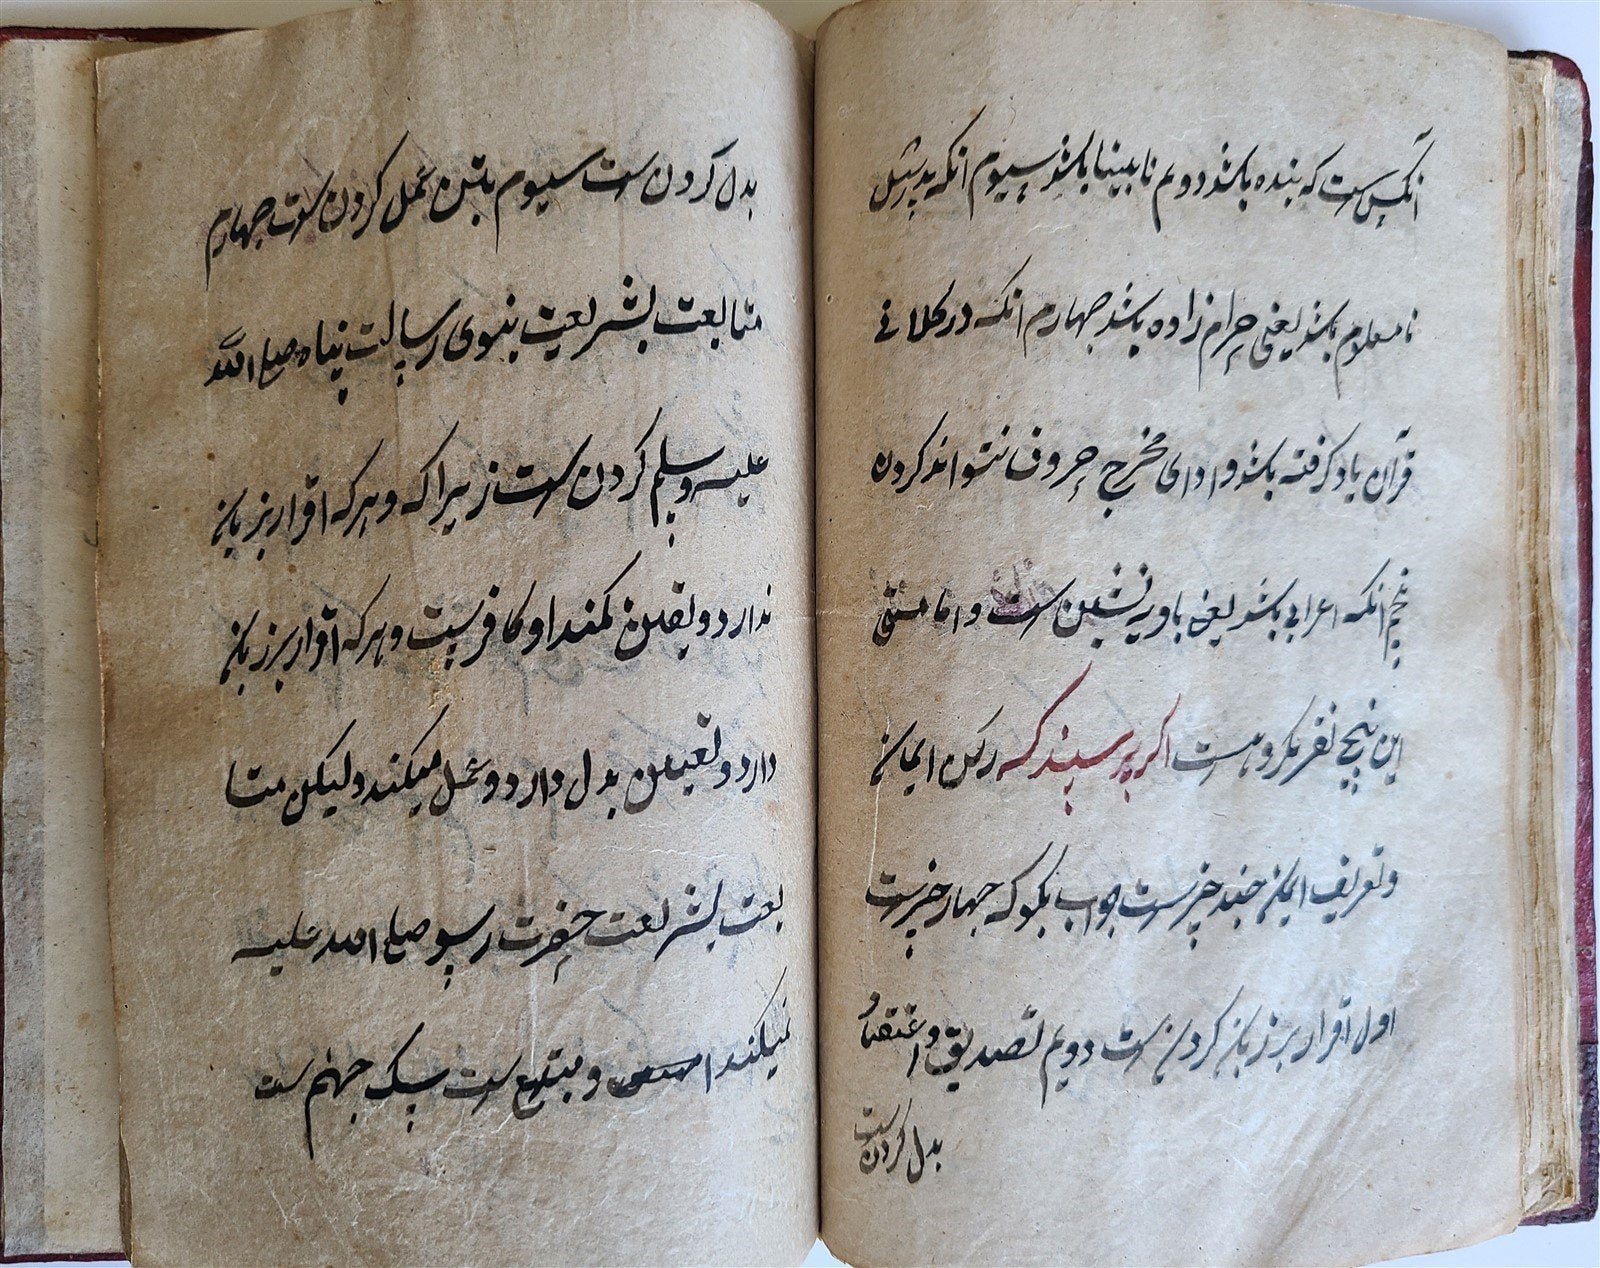 آنکس ست که بنده باشد دویم نابینا باشد سیوم انکه پدرش
نامعلوم باشد یعنی حرام زاده باشد چهارم انکه در کلانی
قرآن یاد کرفته باشد و ادای مخرج حروف نتواند کردن
پنجم انکه اعرابی باشد یعنی بادیه نشین ست و امامتی
این پنج نفر مکروه ست اکر پرسند که رکن ایمان
و تعریف ایمان چند چیزست جواب بکو که چهار چیزست
اول اقرار بر زبان کردن ست دویم تصدیق و اعتقاد
بدل کردن ست
بدل کردن ست سیوم بتن عمل کردن ست چهارم
متابعت بشریعت بنوی رسالت پناه صلی الله
علیه وسلم کردن ست زیراکه و هرکه اقرار بزبان
ندارد و یقین نمکند او کافرست و هرکه اقرار بر زبان
دارد و یقین بدل دارد و عمل میکند ولیکن متا
بعت بشریعت حضرت رسو صلی الله علیه
نمیکند او و مبتدع ست سک جهنم ست